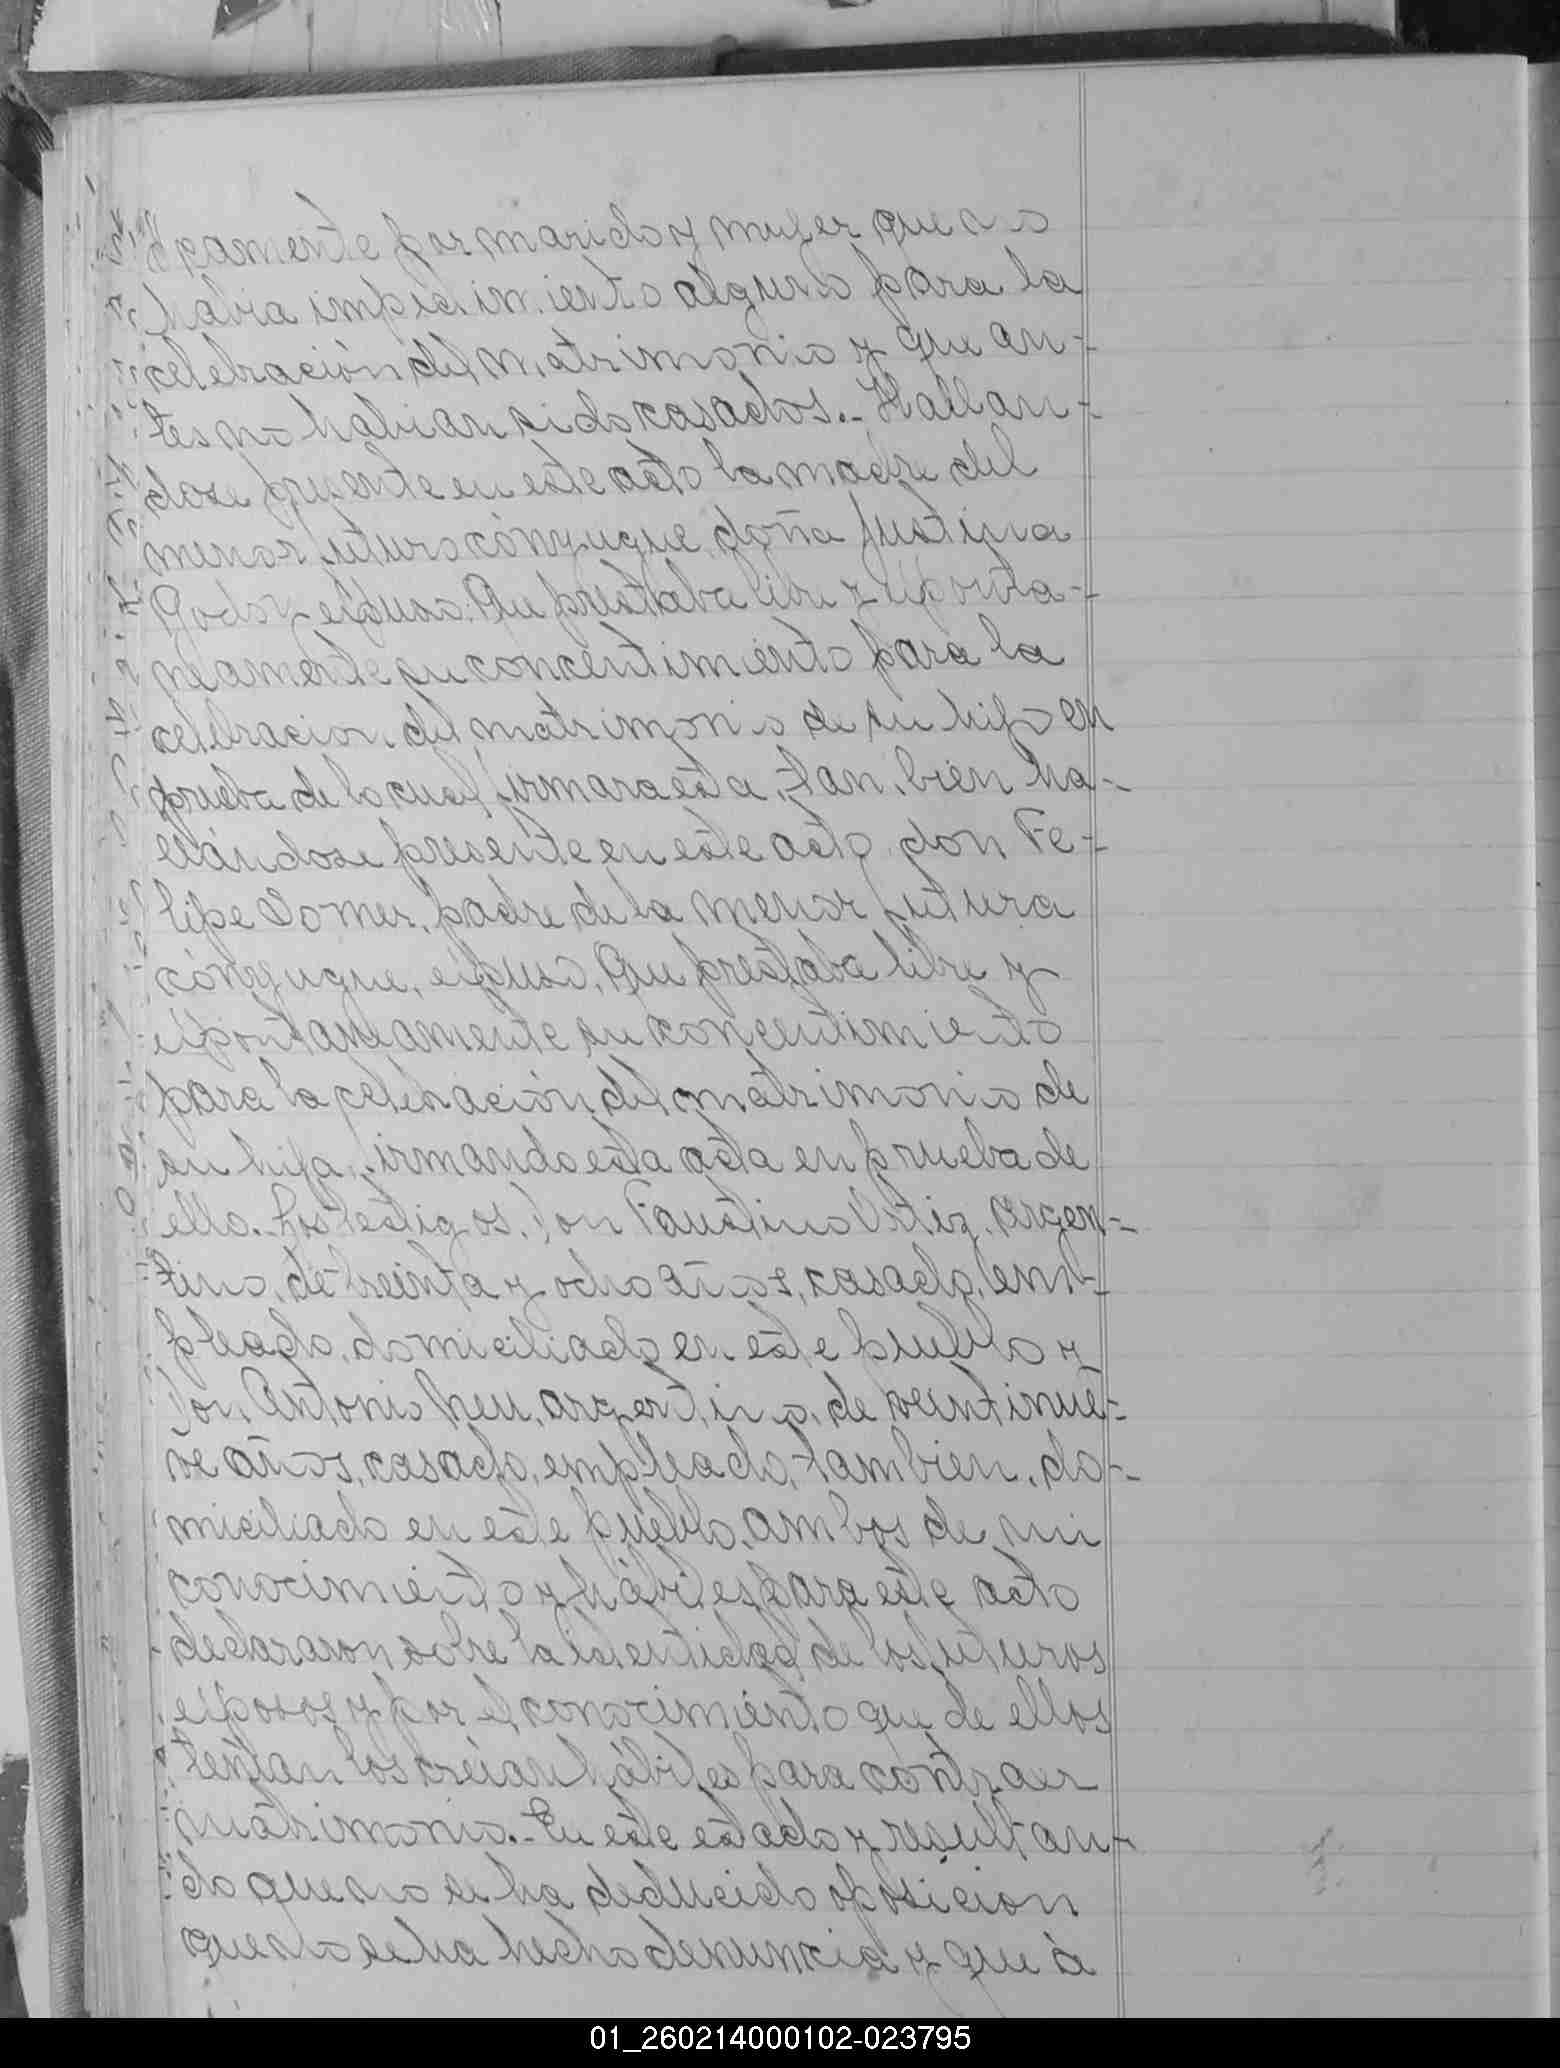 camente por marido y mujer que no
habia impedimiento alguno para la
celebración del matrimonio y que an-
tes no habian sido casados.- Hallan-
dose presente en este acto la madre del
menor futuro cónyugue, doña Justina
Godoy expuso: Que prestaba libre y exponta-
neamente su concentimiento para la
celebracion del matrimonio de su hijo en
prueba de lo cual firmara esta, tan bien ha-
llándose presente en este acto don Fe-
lipe Gomes, padre de la menor futura
cónyugue, expuso, Que prestaba libre y
expontaneamente su concentimiento
para la celebración del matrimonio de
su hija, firmando esta acta en prueba de
ello.- Los testigos, Don Faustino Ortiz, argen-
tino, de treinta y ocho años, casado, em-
pleado, domiciliado en este pueblo y
Don Antonio Neu, argentino, de veintinue-
ve años, casado, empleado, tambien, do-
miciliado en este pueblo, ambos de mi
conocimiento y hábiles para este acto
declararon sobre la identidad de los futuros
esposos y por el conocimiento que de ellos
tenían los creían hábiles para contraer
matrimonio.- En este estado y resultan-
do que no se ha deducido oposicion
que no se ha hecho denuncia y que á
01_260214000102-023795